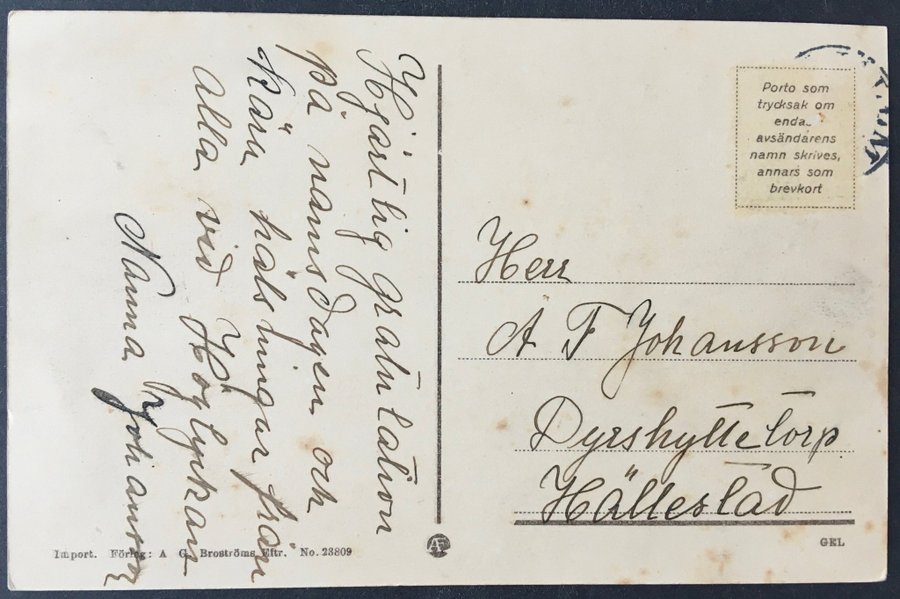 Hjärtlig gratulation
på namsdagen och
Kära hälsningar från
alla vid Höglyckan
Nanna Johansson
Porto som
trycksak om
enda..
avsändarens
namn skrives,
annars som
brevkort
Herr
A F Johansson
Dyrshyttetorp
Hällestad
Import. Förlag: A G Broströms Eftr. No. 23809
AF
GEL